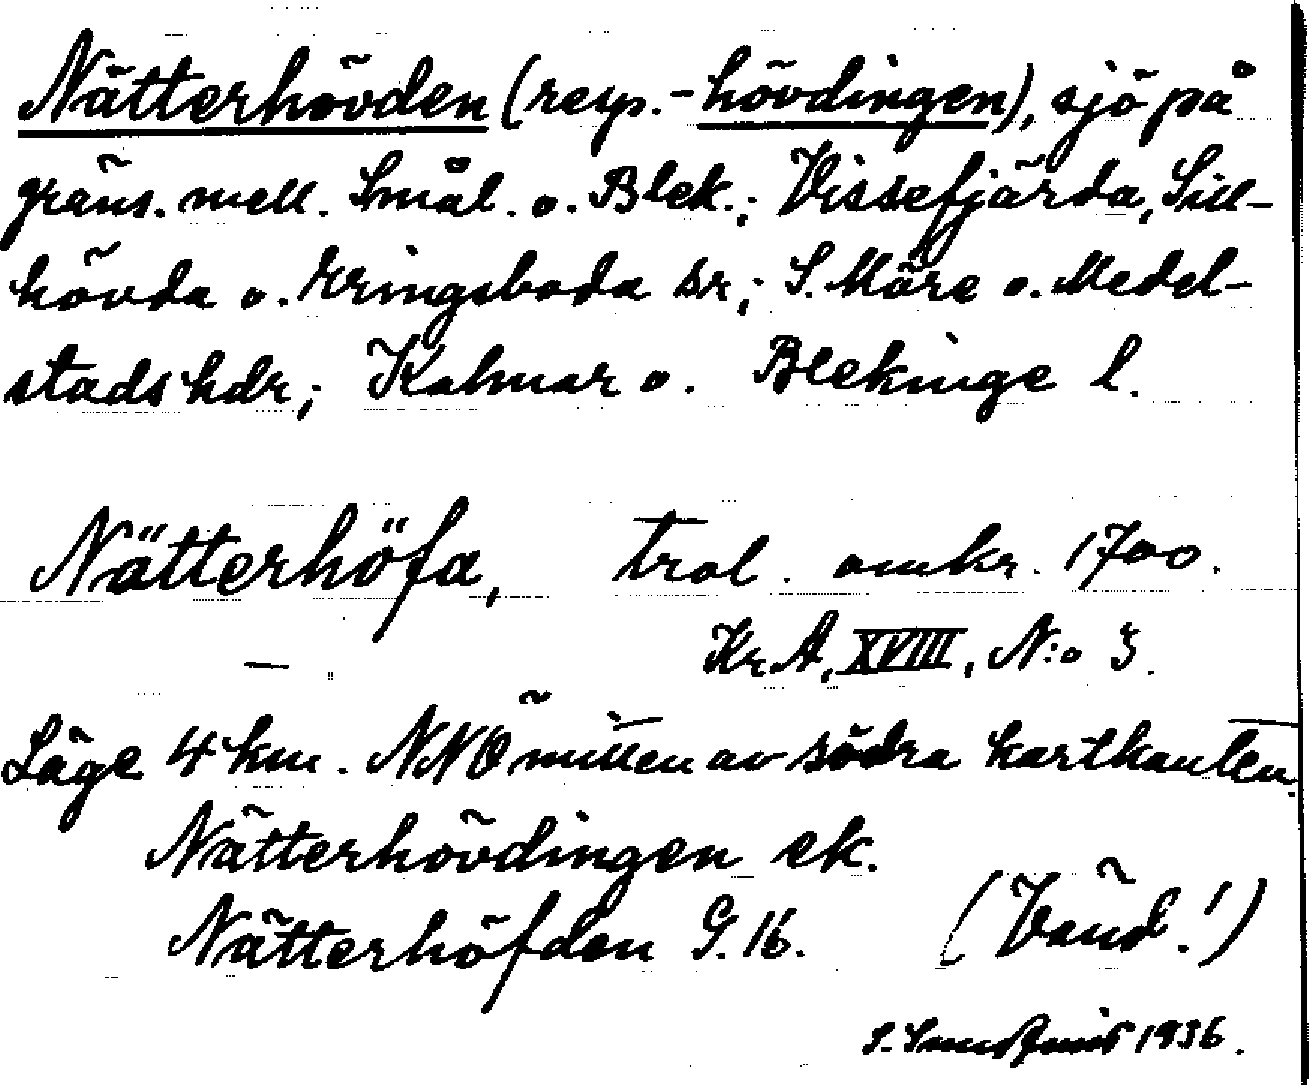 Nätterhövden (resp. -hövdingen), sjö på
gräns. mell. Smål. o. Blek.; Vissefjärda, Sill-
hövda o. Eringsboda sr; S. Möre o. Medel-
stads hdr; Kalmar o. Blekinge l.
Nätterhöfa, trol. omkr. 1700.
Kr. A, XVIII, N:o 3.
— "
Läge 4 km. NNÖ mitten av södra kartkanten.
Nätterhövdingen ek.
Nätterhöfden G. 16. (Vänd!)
S. 1936.